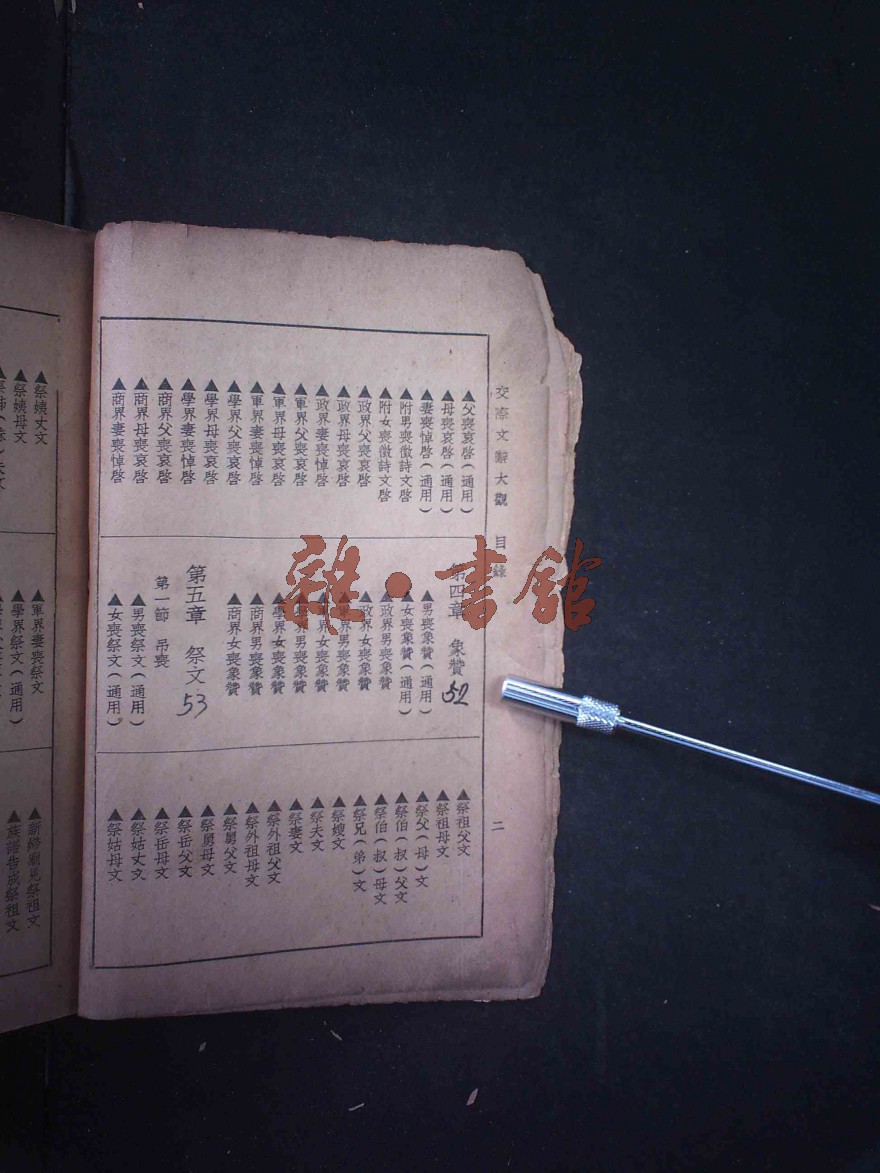 交際文辭大觀 目錄 二
▲父喪哀啓(通用)
▲母喪哀啓(通用)
▲妻喪悼啓(通用)
附男喪徵詩文啓
附女喪徵詩文啓
▲政界父喪哀啓
▲政界母喪哀啓
▲政界妻喪悼啓
▲軍界父喪哀啓
▲軍界母喪哀啓
▲軍界妻喪悼啓
▲學界父喪哀啓
▲學界母喪哀啓
▲學界妻喪悼啓
▲商界父喪哀啓
▲商界母喪哀啓
▲商界妻喪悼啓
第四章 象贊 52
▲男喪象贊(通用)
▲女喪象贊(通用)
▲政界男喪象贊
▲政界女喪象贊
軍界男喪象贊
軍界女喪象贊
學界男喪象贊
學界女喪象贊
▲商界男喪象贊
▲商界女喪象贊
第五章 祭文 53
第一節 吊喪
▲男喪祭文(通用)
▲女喪祭文(通用)
▲祭祖父文
▲祭祖母文
▲祭父(母)文
▲祭伯(叔)父文
▲祭伯(叔)母文
▲祭兄(弟)文
▲祭嫂文
▲祭夫文
▲祭妻文
▲祭外祖父文
▲祭外祖母文
▲祭舅父文
▲祭舅母文
▲祭岳父文
▲祭岳母文
▲祭姑丈文
▲祭姑母文
▲祭姨丈文
▲祭姨母文
▲軍界妻喪祭文
▲學界祭文(通用)
▲新修廟見祭祖文
▲族譜告成祭祖文
雜·書館